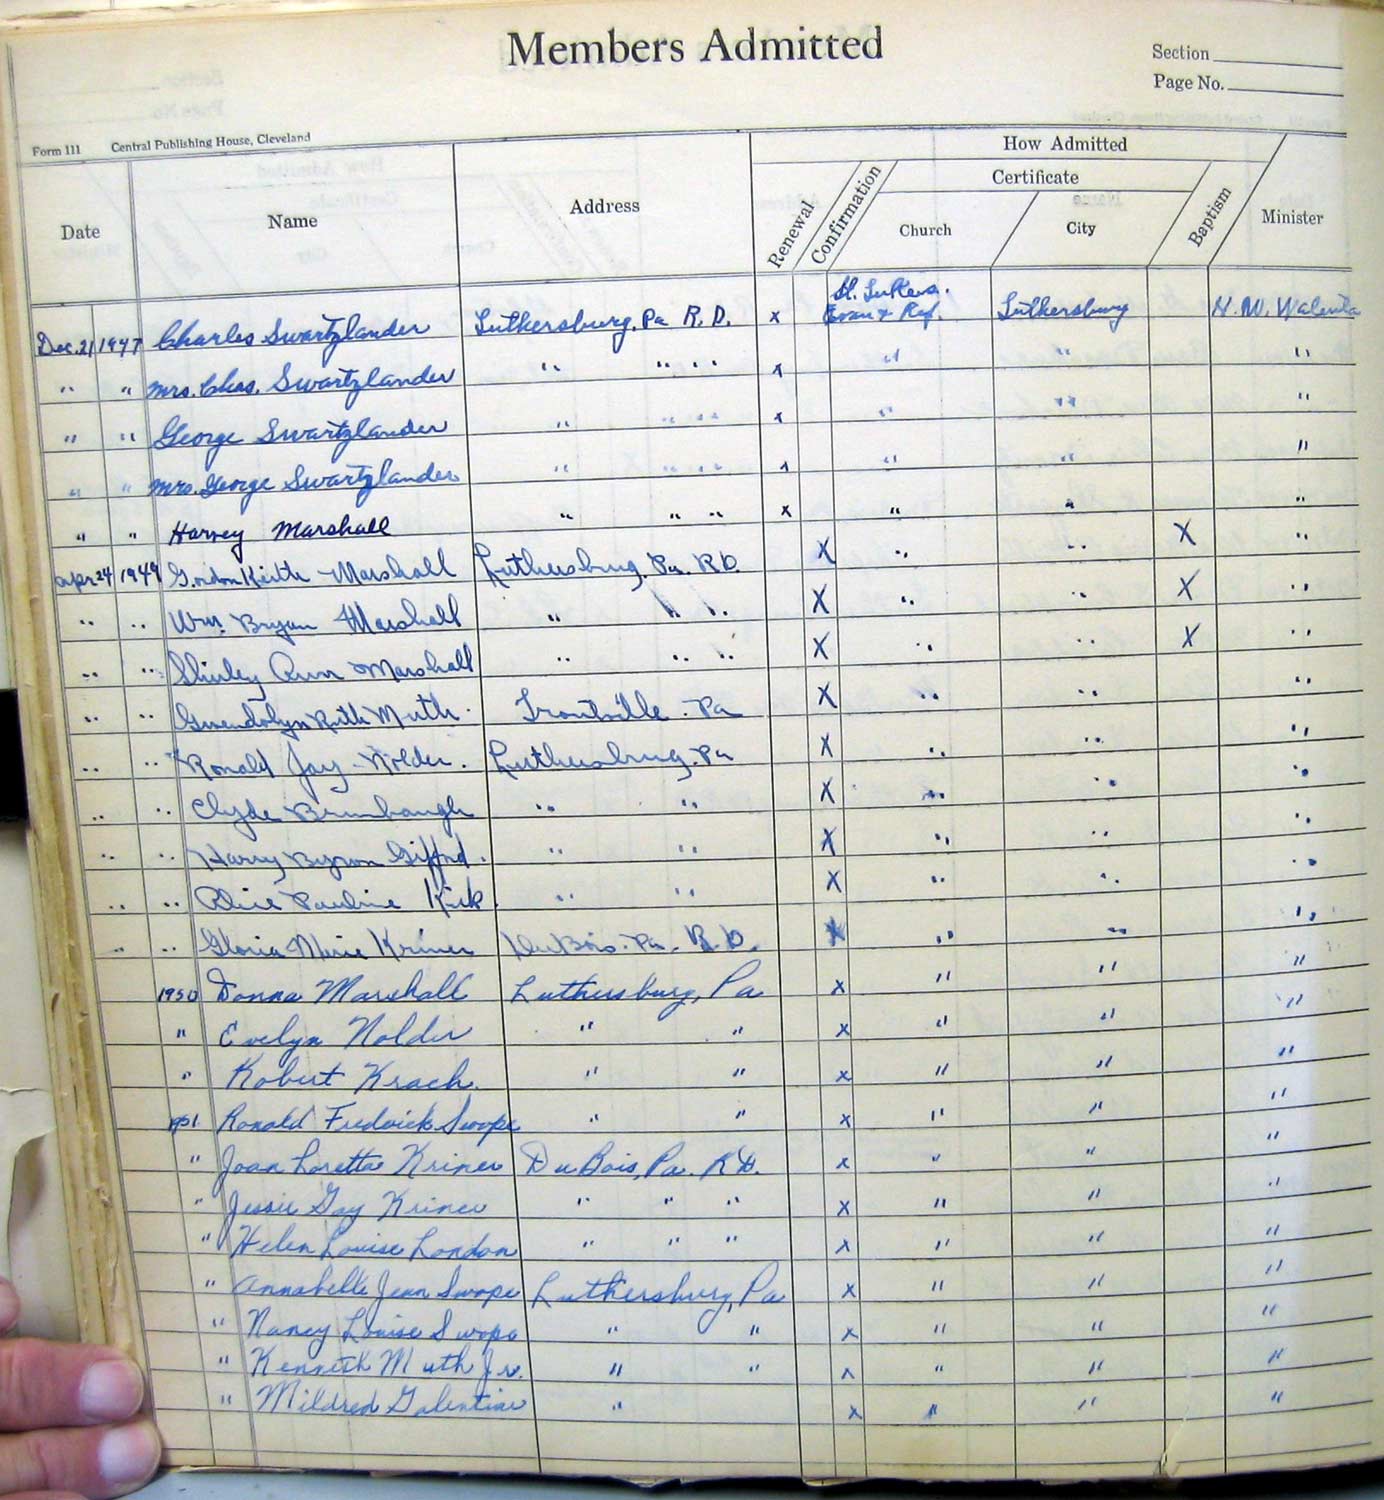 Members Admitted
Section
Page No.
Form 111 Central Publishing House, Cleveland
How Admitted
Certificate
Date Name Address Renewal Confirmation Church City Baptism Minister
St. Lukes.
Dec. 21 1947 Charles Swartzlander Luthersburg, Pa R.D. x Evan & Ref. Luthersburg H. W. Walenta
" " Mrs. Chas. Swartzlander " " " " x " " "
" " George Swartzlander " " " " x " " "
" " Mrs. George Swartzlander " " " " x " " "
" " Harvey Marshall " " " x " " "
Apr 24 1949 Gordon Keith Marshall Luthersburg, Pa. R.D. X " " X "
" " Wm. Bryan Marshall " " " X " " X "
" " Shirley Ann Marshall " " " X " " X "
" " Gwendolyn Ruth Muth. Troutville. Pa X " " "
" " Ronald Jay Nolder. Luthersburg. Pa X " " "
" " Clyde Brumbaugh " " X " " "
" " Harry Byron Gifford. " " X " " "
" " Alice Pauline Kirk. " " X " " "
" " Gloria Marie Kriner DuBois. Pa. R.D. X " " "
1950 Donna Marshall Luthersburg, Pa x " " "
" Evelyn Nolder " " x " " "
" Robert Krach. " " x " " "
1951. Ronald Fredrick Swope " " x " " "
" Joan Loretta Kriner DuBois, Pa. R.D. x " " "
" Jessie Gay Kriner " " " x " " "
" Helen Louise London " " " x " " "
" Annabelle Jean Swope Luthersburg, Pa x " " "
" Nancy Louise Swope " " x " " "
" Kenneth Muth Jr. " " x " " "
" Mildred Galentine " x " " "